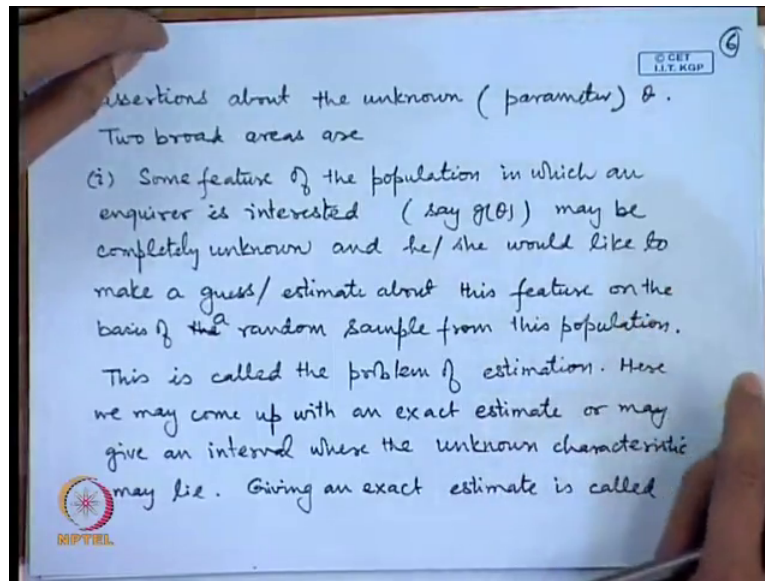 6
© CET
I.I.T. KGP
assertions about the unknown ( parameter ) θ.
Two broad areas are
(i) Some feature of the population in which an
enquirer is interested ( say g(θ) ) may be
completely unknown and he/ she would like to
make a guess/ estimate about this feature on the
basis of a random sample from this population.
This is called the problem of estimation. Here
we may come up with an exact estimate or may
give an interval where the unknown characteristic
may lie. Giving an exact estimate is called
NPTEL